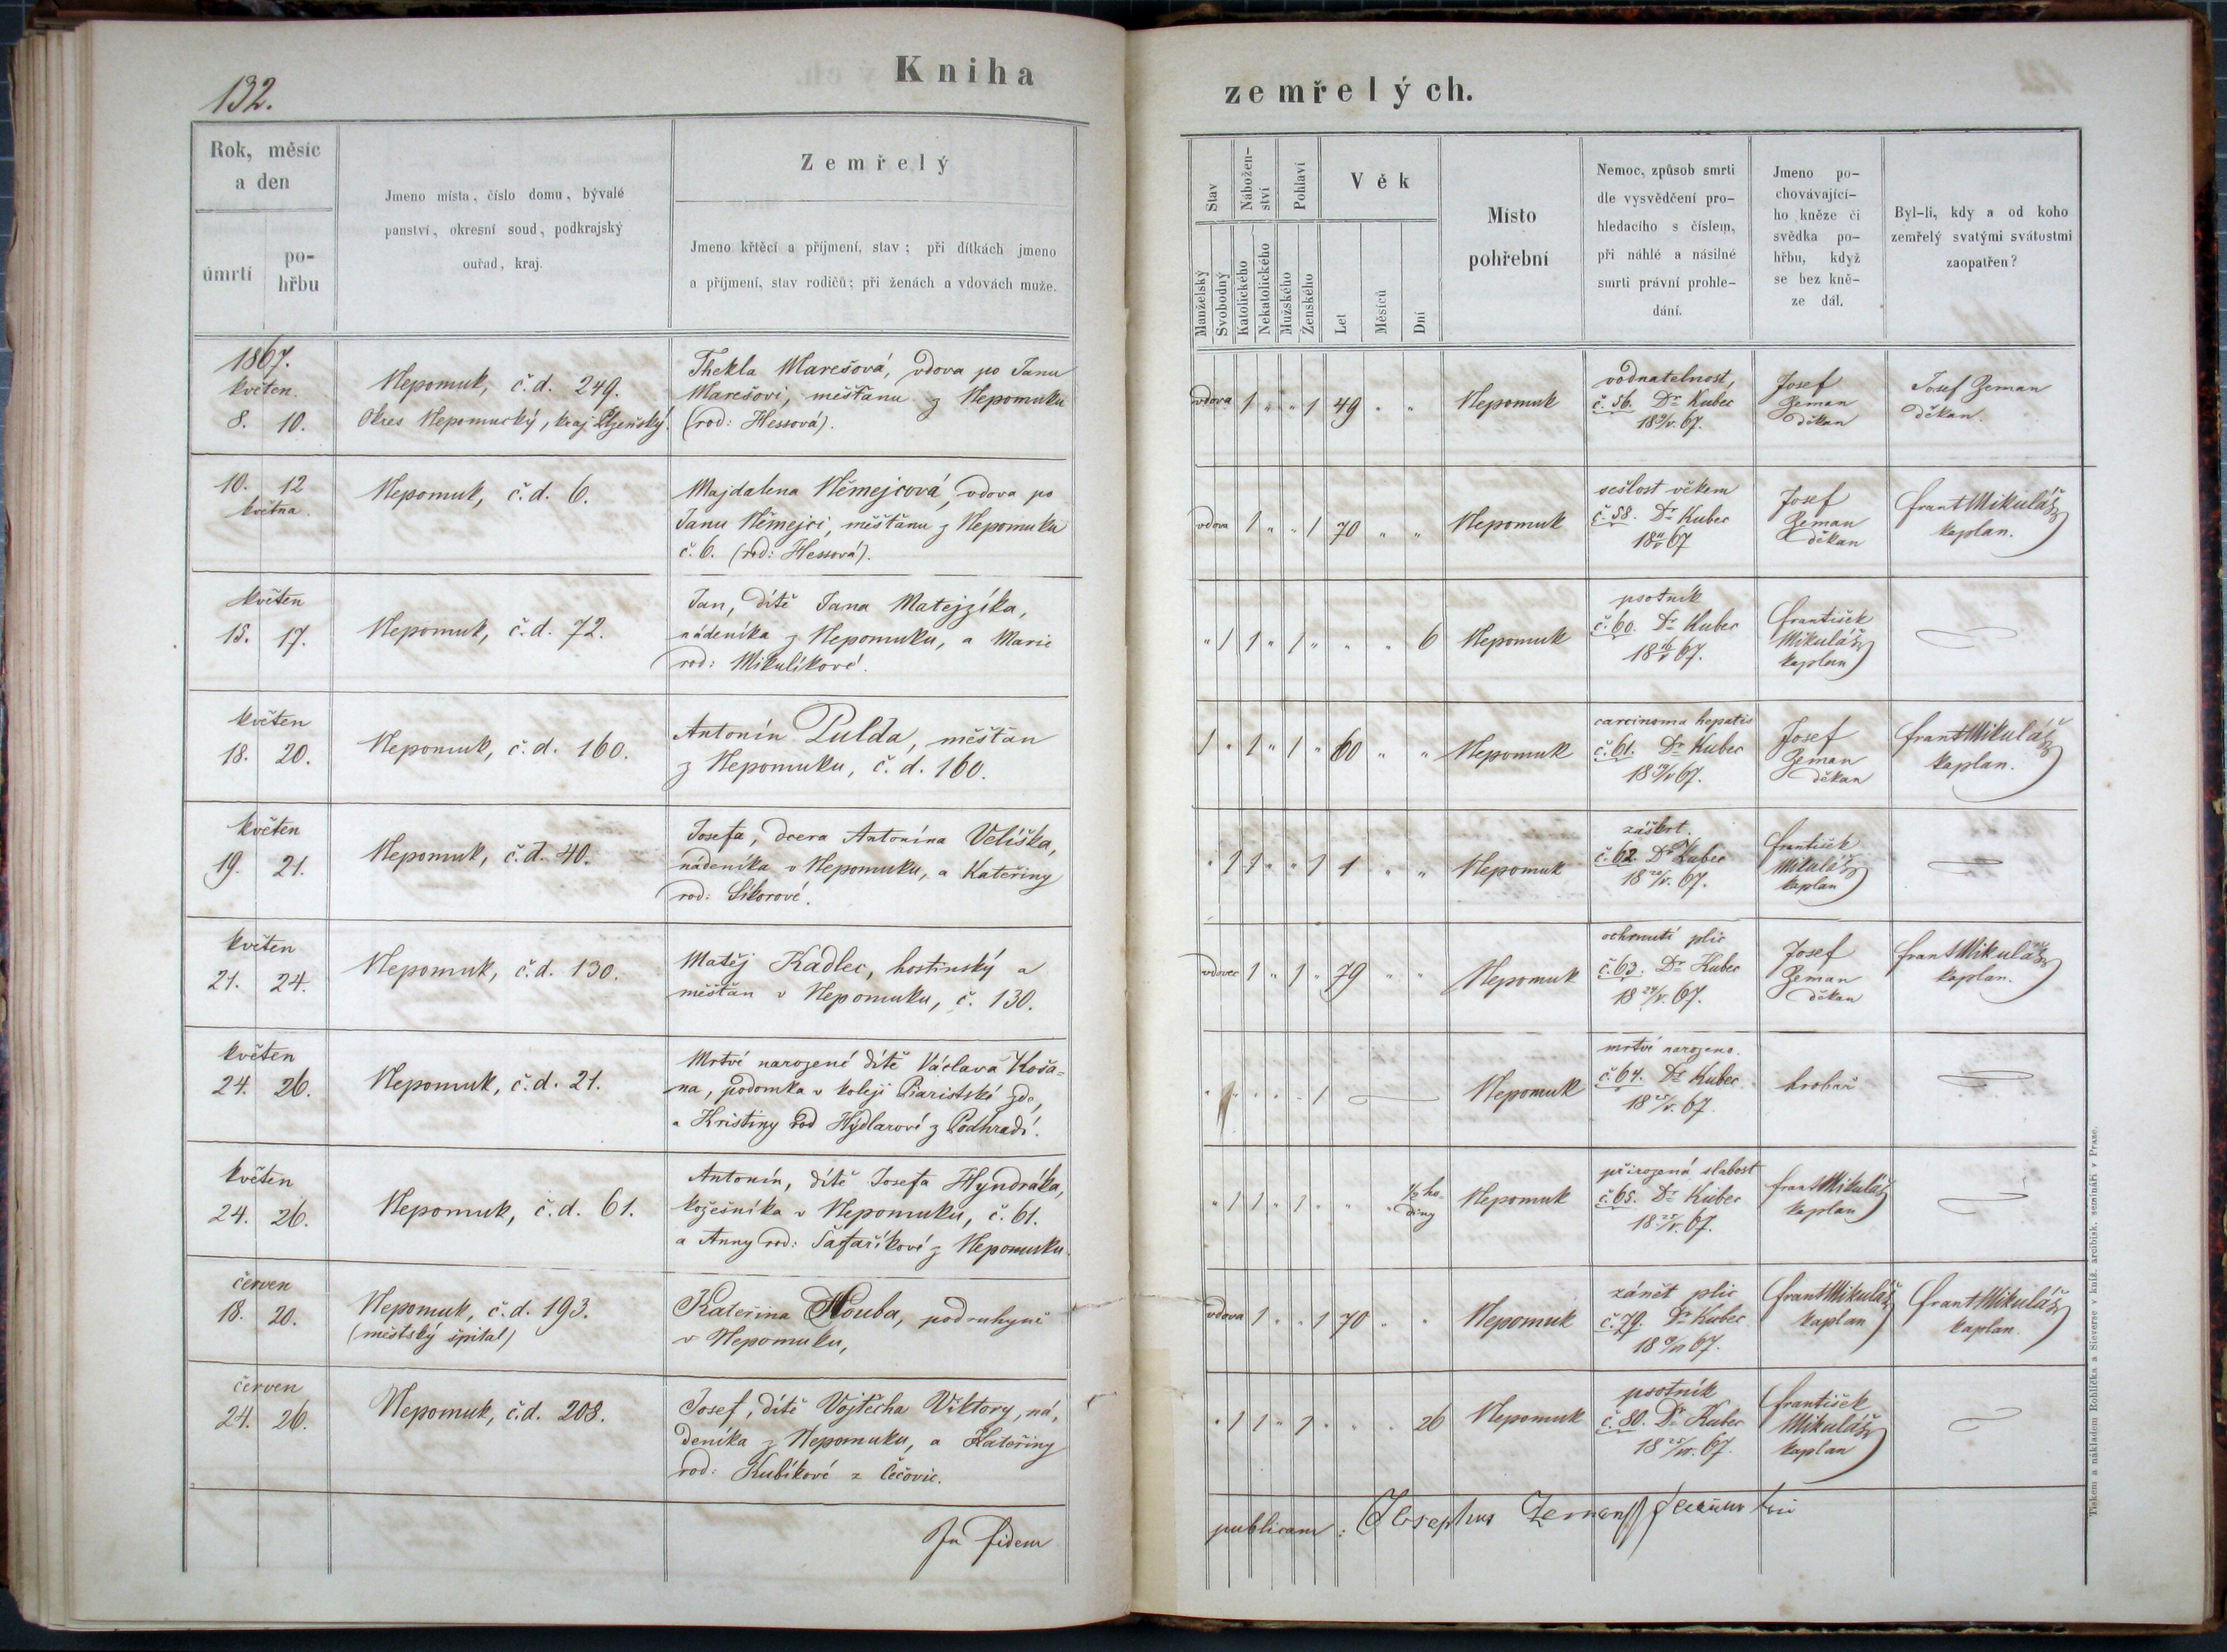 132.
Kniha
Rok, měsíc
a den
úmrtí
po-
hřbu
Jmeno místa, číslo domu, bývalé
panství, okresní soud, podkrajský
ouřad, kraj.
Zemřelý
Jmeno křtěcí a příjmení, stav; při dítkách jmeno
a příjmení, stav rodičů; při ženách a vdovách muže.
1867.
květen.
8. 10.
Nepomuk, č.d. 249.
Okres Nepomucký, kraj Plzeňský.
Thekla Marešová, vdova po Janu
Marešovi, měšťanu z Nepomuku
(rod: Hessová).
10. 12
května.
Nepomuk, č.d. 6.
Majdalena Němejcová, vdova po
Janu Němejci, měšťanu z Nepomuku
č. 6. (rod: Hessová).
květen
15. 17.
Nepomuk, č.d. 72.
Jan, dítě Jana Matejzíka,
nádeníka z Nepomuku, a Marie
rod: Mikulíkové.
květen
18. 20.
Nepomuk, č.d. 160.
Antonín Pulda, měšťan
z Nepomuku, č. d. 160.
květen
19. 21.
Nepomuk, č.d. 40.
Josefa, dcera Antonína Velíška,
nádeníka v Nepomuku, a Kateřiny
rod: Síkorové.
květen
21. 24.
Nepomuk, č.d. 130.
Matěj Kadlec, hostinský a
měšťan v Nepomuku, č. 130.
květen
24. 26.
Nepomuk, č.d. 21.
Mrtvé narozené dítě Václava Koša=
na, podomka v koleji Piaristské zde,
a Kristiny rod Hýdlarové z Podhradí.
květen
24. 26.
Nepomuk, č.d. 61.
Antonín, dítě Josefa Hyndráka,
kožešníka v Nepomuku, č. 61.
a Anny rod: Šafaříkové z Nepomuku.
červen
18. 20.
Nepomuk, č.d. 193.
(městský špitál)
Kateřina Houba, podruhyně
v Nepomuku,
červen
24. 26.
Nepomuk, č.d. 208.
Josef, dítě Vojtěcha Viktory, ná,
deníka z Nepomuku, a Kateřiny
rod: Kubíkové z Čečovic.
In fidem
zemřelých.
Stav
Manželský
Svobodný
Nábožen-
ství
Katolického
Nekatolického
Pohlaví
Mužského
Ženského
Věk
Let
Měsíců
Dní
Místo
pohřební
Nemoc, způsob smrti
dle vysvědčení pro-
hledacího s číslem,
při náhlé a násilné
smrti právní prohle-
dání.
Jmeno po-
chovávající-
ho kněze či
svědka po-
hřbu, když
se bez kně-
ze dál.
Byl-li, kdy a od koho
zemřelý svatými svátostmi
zaopatřen?
vdova 1 " " 1 49 " "
Nepomuk
vodnatelnost,
č. 56. Dr Kubec
18 9/V. 67.
Josef
Zeman
děkan
Josef Zeman
děkan.
vdova 1 " " 1 70 " "
Nepomuk
sešlost věkem
č. 58. Dr Kubec
18 11/V 67
Josef
Zeman
děkan
frant Mikuláš
kaplan.
" 1 1 " 1 " " " 6
Nepomuk
psotník
č. 60. Dr Kubec
18 16/V 67.
františek
Mikuláš
kaplan
1 " 1 " 1 " 60 " "
Nepomuk
carcinoma hepatis
č. 61. Dr Kubec
18 19/V 67.
Josef
Zeman
děkan
frant Mikuláš
kaplan.
" 1 1 " " 1 1 " "
Nepomuk
záškrt.
č. 62. Dr Kubec
18 20/V. 67.
františek
Mikuláš
kaplan
vdovec 1 " 1 " 79 " "
Nepomuk
ochrnutí plic
č. 63. Dr Kubec
18 24/V. 67.
Josef
Zeman
děkan
frant Mikuláš
kaplan.
1
Nepomuk
mrtvé narozeno.
č. 64. Dr Kubec
18 25/V. 67.
hrobař
" 1 1 " 1 " " " 1/2 ho-
diny
Nepomuk
přirozená slabost
č. 65. Dr Kubec
18 25/V. 67.
frant Mikuláš
kaplan
vdova 1 " " 1 70 " "
Nepomuk
zánět plic
č. 79. Dr Kubec
67.
frant Mikuláš
kaplan
frant Mikuláš
kaplan.
" 1 1 " 1 " " " 26
Nepomuk
psotník
č. 80. Dr Kubec
18 25/VI. 67.
františek
Mikuláš
kaplan
publicam: Josephus Zeman
Tiskem a nákladem Rohlíčka a Sieverse v kníž. arcibisk. semináři v Praze.